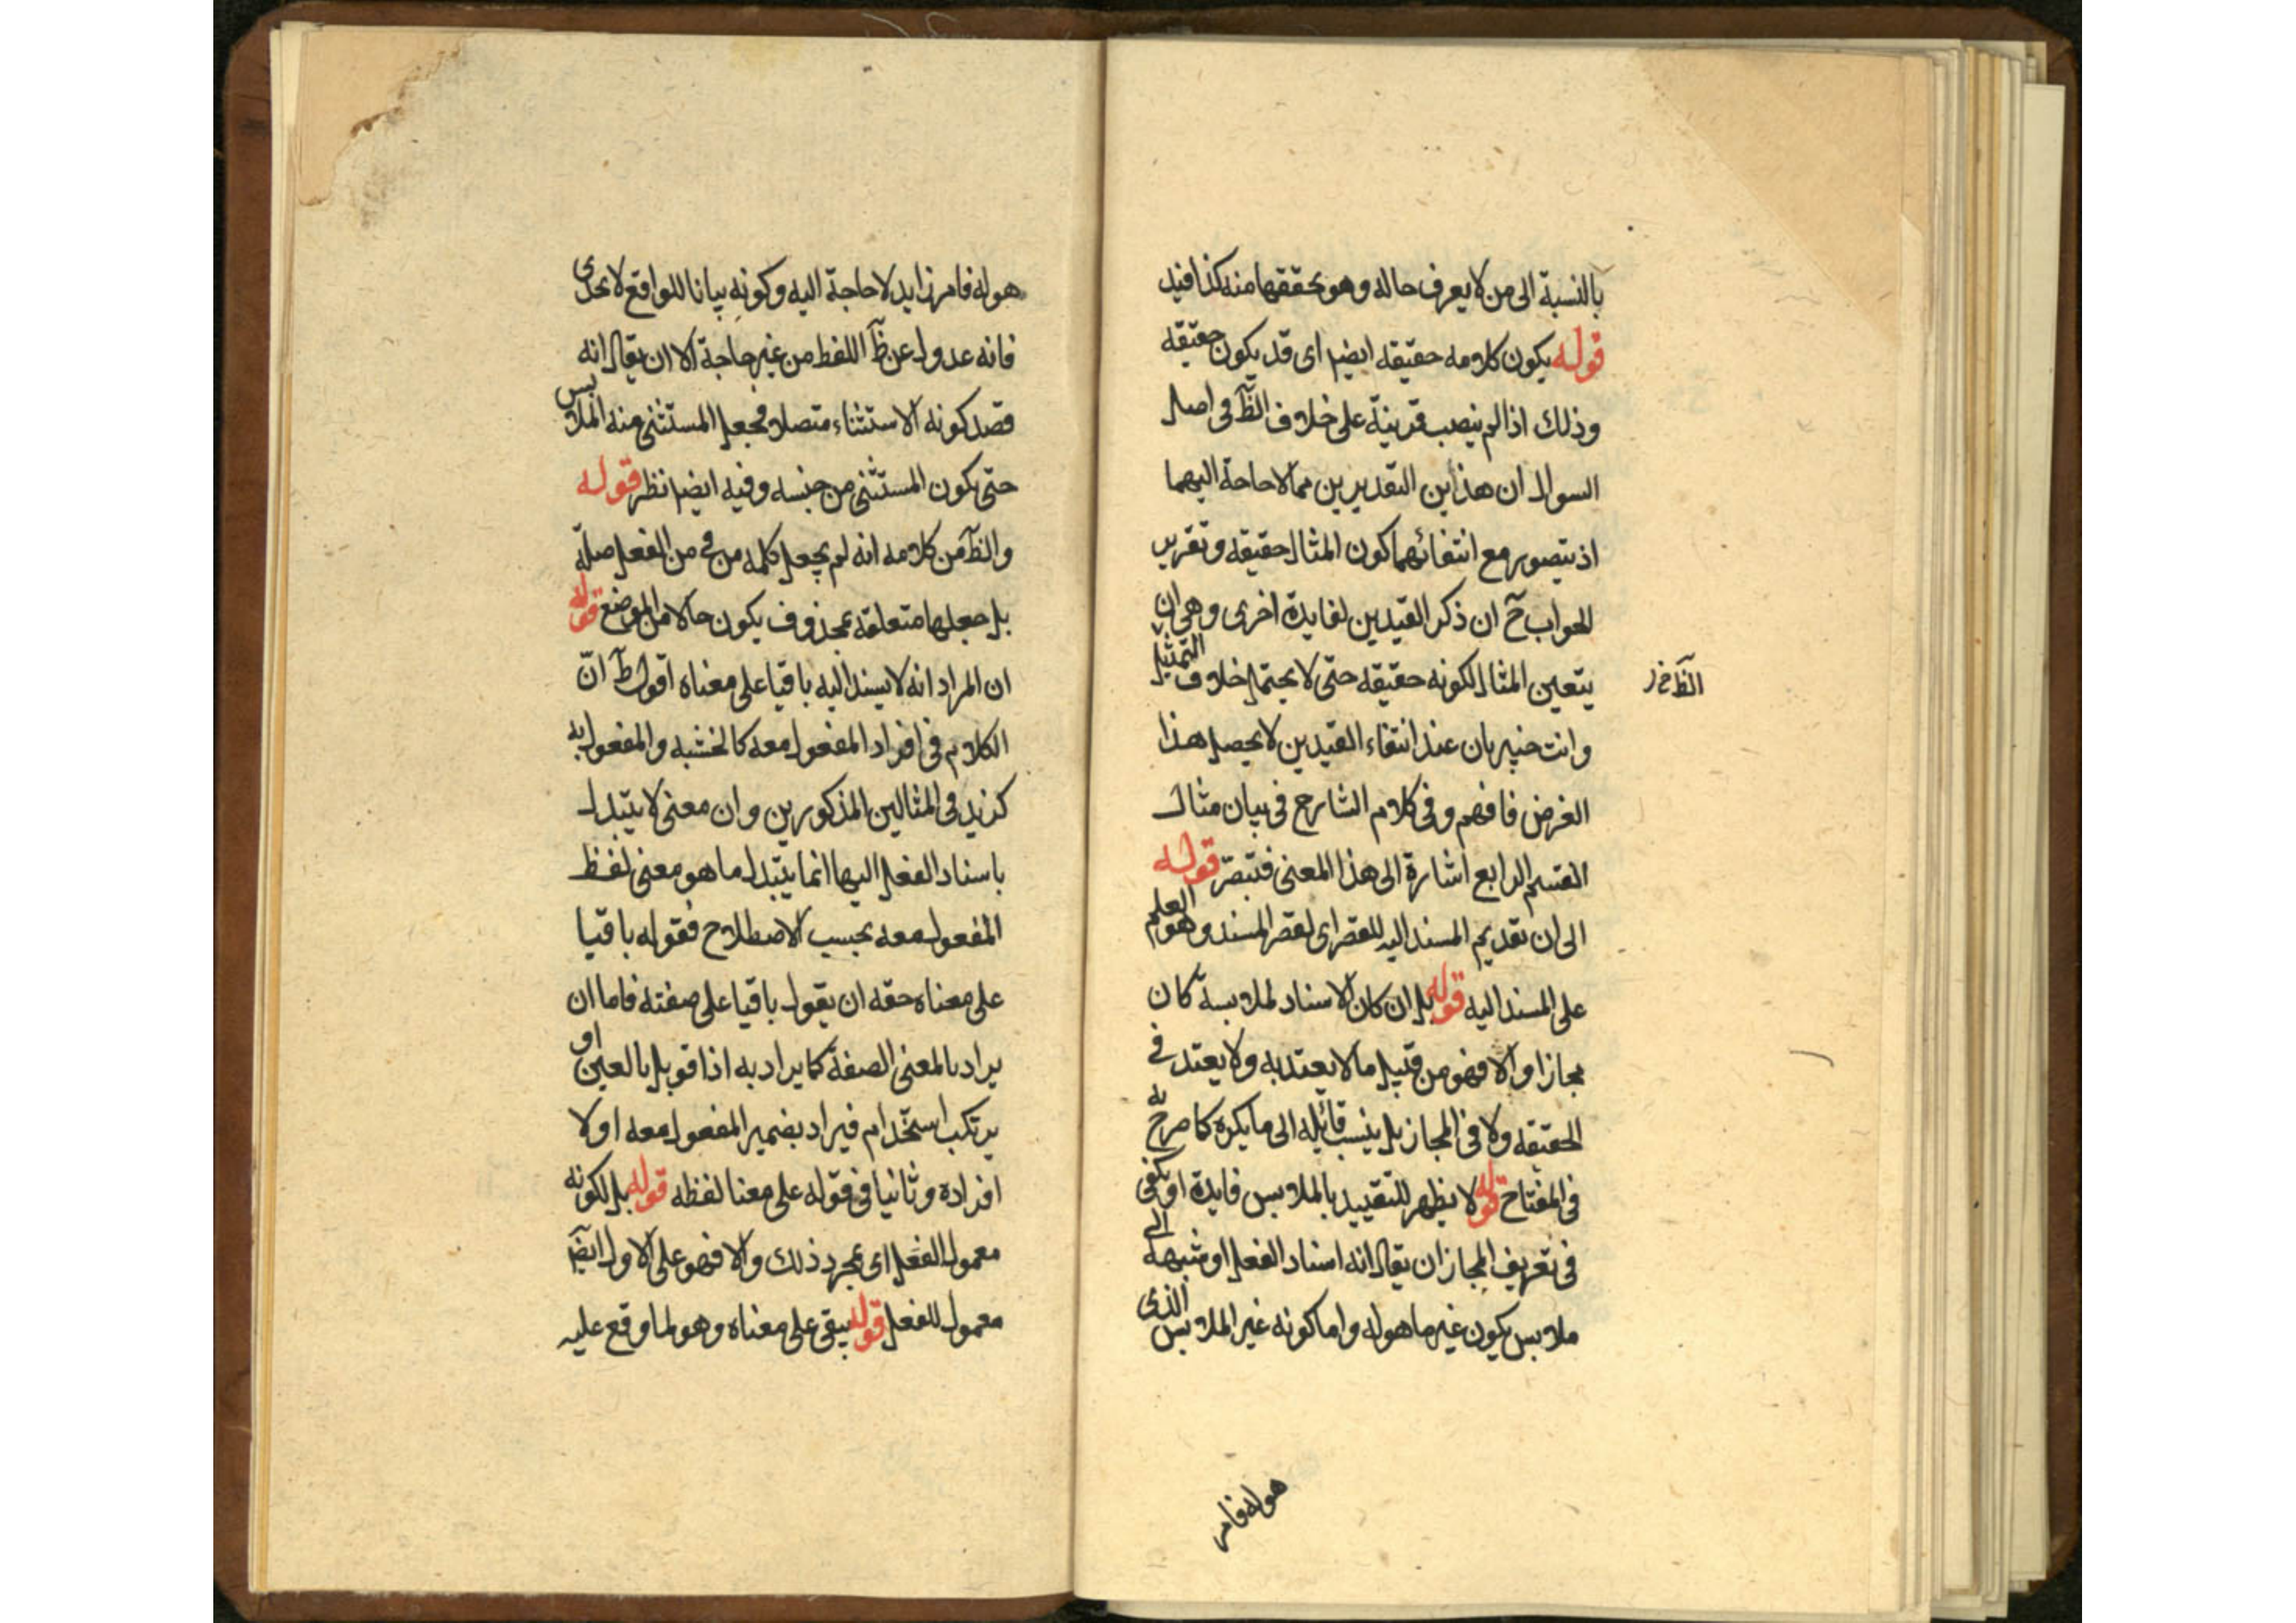 بالنسبة الى من لا يعرف حاله وهو تحققها منه كذا قيل
قوله يكون كلامه حقيقه ايضا اى قد يكون حقيقه
وذلك اذا لم ينصب قرينة على خلاف الظ فى اصل
السوال ان هذاين التقديرين مما لا حاجة اليهما
اذ يتصور مع انتفائهما كون المثال حقيقه وتقرير
الجواب ح ان ذكر القيدين لفايدة اخرى وهى ان
يتعين المثال لكونه حقيقه حتى لا يحتمل خلاف التمثيل
الظ خ ر
وانت خبير بان عند انتفاء القيدين لا يحصل هذا
الغرض فافهم وفى كلام الشارح فى بيان مثال
القسم الرابع اشارة الى هذا المعنى فتبصر قوله
الى ان تقديم المسند اليه للقصر اى لقصر المسند وهو العلم
على المسند اليه قوله بل ان كان الاسناد لملابسة كان
مجازا والا فهو من قبيل ما لا يعتد به ولا يعتد فى
الحقيقه ولا فى المجاز بل ينسب قائله الى ما يكره كما صرح به
فى المفتاح قوله لا يظهر للتقييد بالملابس فايدة او يكفى
فى تعريف المجاز ان يقال انه اسناد الفعل او شبهه الى
ملابس يكون غير ما هو له واما كونه غير الملابس الذى
هو له فامر
هو له فامر زايد لا حاجة اليه وكونه بيانا للواقع لا يجدى
فانه عدول عن ظ اللفظ من غير حاجة الا ان يقال انه
قصد كونه الاستثناء متصلا فجعل المستثنى منه الملابس
حتى يكون المستثنى من جنسه وفيه ايضا نظر قوله
والظ من كلامه انه لم يجعل كلمه من فى من الفعل صلة
بل جعلها متعلقه بمحذوف يكون حالا من الموضع قوله
ان المراد انه لا يسند اليه باقيا على معناه اقول ظ ان
الكلام فى افراد المفعول معه كالخشبه والمفعول به
كزيد فى المثالين المذكورين وان معنى لا يتبدل
باسناد الفعل اليها انما يتبدل ما هو معنى لفظ
المفعول معه بحسب الاصطلاح فقوله باقيا
على معناه حقه ان يقول باقيا على صفته فاما ان
يراد بالمعنى الصفة كما يراد به اذا قوبل بالعين او
يرتكب استخدام فيراد بضمير المفعول معه اولا
افراده وثانيا فى قوله على معنا لفظه قوله بل لكونه
معمول الفعل اى بمجرد ذلك والا فهو على الاول ايضا
معمول للفعل قوله يبقى على معناه وهو لما وقع عليه